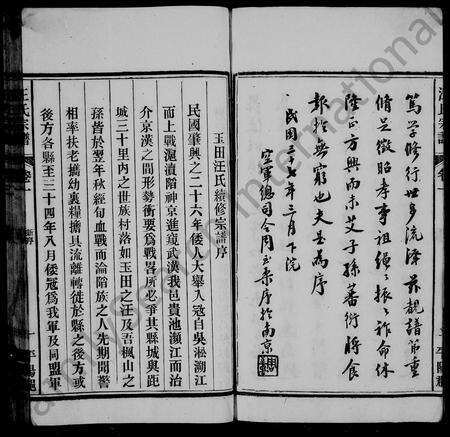 篤學修行世多流澤茲覩譜節重
修足徵昭孝事祖繩繩振振詐命休
陸正方興而未艾子孫蕃衍將食
報於無窮也夫是為序
民國三十七年三月下浣
空軍總司令周至柔序於南京
玉田汪氏續修宗譜序
民國肇興之二十六年倭人大舉入寇自吳淞溯江
而上戰滬瀆陷神京進窺武漢我邑貴池瀕江而治
介京漢之間形勢衝要為戰畧所必爭其縣城與距
城二十里内之世族村落如玉田之汪及吾楓山之
孫皆於翌年秋經旬血戰而淪陷族之人先期聞警
相率扶老攜幼裹糧擔具流離轉徙於縣之後方或
後方各縣至三十四年八月倭寇為我軍及同盟軍
汪氏宗譜
卷一